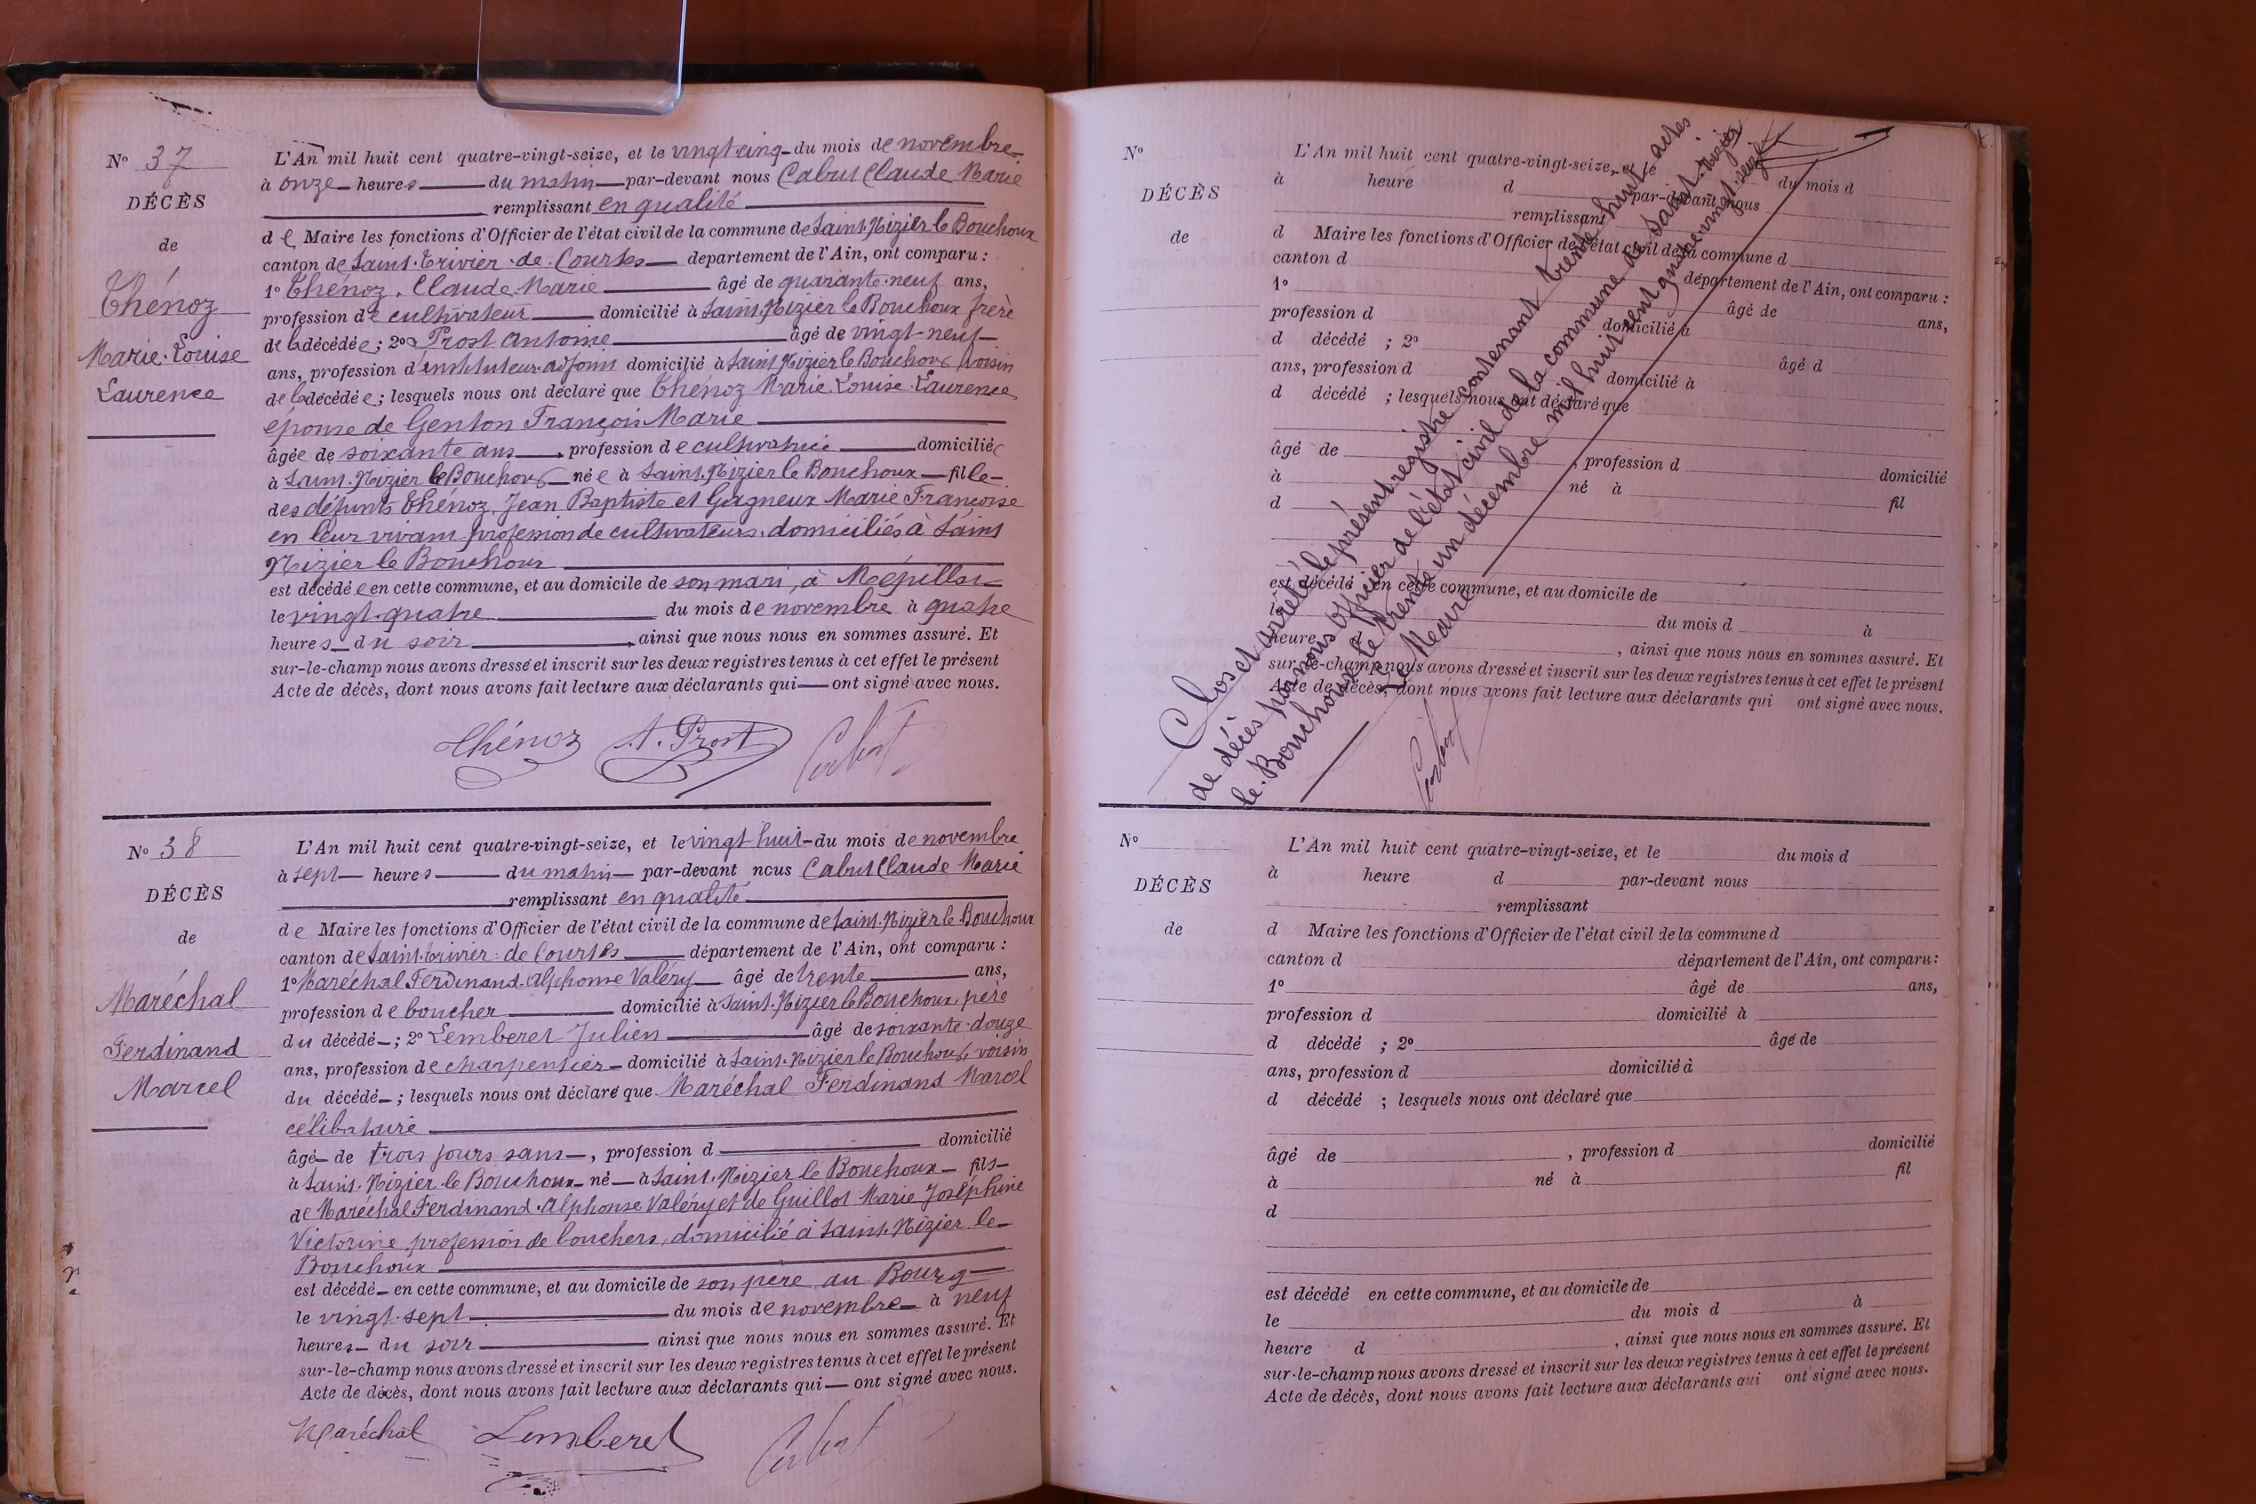 N° 37
DÉCÈS
de
Thénoz
Marie-Louise
Laurence
L'An mil huit cent quatre-vingt-seize, et le vingt cinq du mois de novembre
à onze heures du matin par-devant nous Cabut Claude Marie
remplissant en qualité
de Maire les fonctions d'Officier de l'état civil de la commune de Saint-Nizier le Bouchoux
canton de Saint-Trivier-de-Courtes département de l'Ain, ont comparu :
1° Thénoz, Claude Marie âgé de quarante-neuf ans,
profession de cultivateur domicilié à Saint-Nizier le Bouchoux frère
de la décédée ; 2° Prost Antoine âgé de vingt-neuf
ans, profession d'instituteur-adjoint domicilié à Saint Nizier le Bouchoux voisin
de la décédée ; lesquels nous ont déclaré que Thénoz Marie Louise Laurence
épouse de Genton François Marie
âgée de soixante ans, profession de cultivatrice domiciliée
à Saint-Nizier le Bouchoux née à Saint-Nizier le Bouchoux fille
des défunts Thénoz, Jean Baptiste et Gagneux Marie Françoise
en leur vivant profession de cultivateurs, domiciliés à Saint
Nizier le Bouchoux
est décédée en cette commune, et au domicile de son mari, à
le vingt-quatre du mois de novembre à quatre
heures du soir, ainsi que nous nous en sommes assuré. Et
sur-le-champ nous avons dressé et inscrit sur les deux registres tenus à cet effet le présent
Acte de décès, dont nous avons fait lecture aux déclarants qui ont signé avec nous.
Thénoz A. Prost Cabut
N° 38
DÉCÈS
de
Maréchal
Ferdinand
Marcel
L'An mil huit cent quatre-vingt-seize, et le vingt huit du mois de novembre
à sept heures du matin par-devant nous Cabut Claude Marie
remplissant en qualité
de Maire les fonctions d'Officier de l'état civil de la commune de Saint-Nizier le Bouchoux
canton de Saint-Trivier-de Courtes département de l'Ain, ont comparu :
1° Maréchal Ferdinand-Alphonse Valéry âgé de trente ans,
profession de boucher domicilié à Saint-Nizier le Bouchoux père
du décédé ; 2° Lemberet Julien âgé de soixante-douze
ans, profession de charpentier domicilié à Saint-Nizier le Bouchoux, voisin
du décédé ; lesquels nous ont déclaré que Maréchal Ferdinand Marcel
célibataire
âgé de trois jours sans, profession d domicilié
à Saint-Nizier le Bouchoux né à Saint-Nizier le Bouchoux fils
de Maréchal Ferdinand-Alphonse Valéry et de Guillot Marie Joséphine
Victorine profession de bouchers, domicilié à Saint-Nizier le
Bouchoux
est décédé en cette commune, et au domicile de son père au Bourg
le vingt-sept du mois de novembre à neuf
heures du soir ainsi que nous nous en sommes assuré. Et
sur-le-champ nous avons dressé et inscrit sur les deux registres tenus à cet effet le présent
Acte de décès, dont nous avons fait lecture aux déclarants qui ont signé avec nous.
Maréchal Lemberet Cabut
N°
DÉCÈS
de
L'An mil huit cent quatre-vingt-seize, et le du mois d
à heure d par-devant nous
remplissant
d Maire les fonctions d'Officier de l'état civil de la commune d
canton d département de l'Ain, ont comparu :
1° âgé de ans,
profession d domicilié à
d décédé ; 2° âgé d
ans, profession d domicilié à
d décédé ; lesquels nous ont déclaré que
âgé de , profession d domicilié
à né à
d fil
est décédé en cette commune, et au domicile de
le du mois d à
heure d , ainsi que nous nous en sommes assuré. Et
sur-le-champ nous avons dressé et inscrit sur les deux registres tenus à cet effet le présent
Acte de décès, dont nous avons fait lecture aux déclarants qui ont signé avec nous.
Clos et arrêté le présent registre contenant trente huit actes
de décès par nous officier de l'état civil de la commune de Saint-Nizier
le-Bouchoux le trente un décembre mil huit cent quatre vingt-seize
Le Maire
Cabut
N°
DÉCÈS
de
L'An mil huit cent quatre-vingt-seize, et le du mois d
à heure d par-devant nous
remplissant
d Maire les fonctions d'Officier de l'état civil de la commune d
canton d département de l'Ain, ont comparu :
1° âgé de ans,
profession d domicilié à
d décédé ; 2° âgé de
ans, profession d domicilié à
d décédé ; lesquels nous ont déclaré que
âgé de , profession d domicilié
à né à fil
d
est décédé en cette commune, et au domicile de
le du mois d à
heure d , ainsi que nous nous en sommes assuré. Et
sur-le-champ nous avons dressé et inscrit sur les deux registres tenus à cet effet le présent
Acte de décès, dont nous avons fait lecture aux déclarants qui ont signé avec nous.